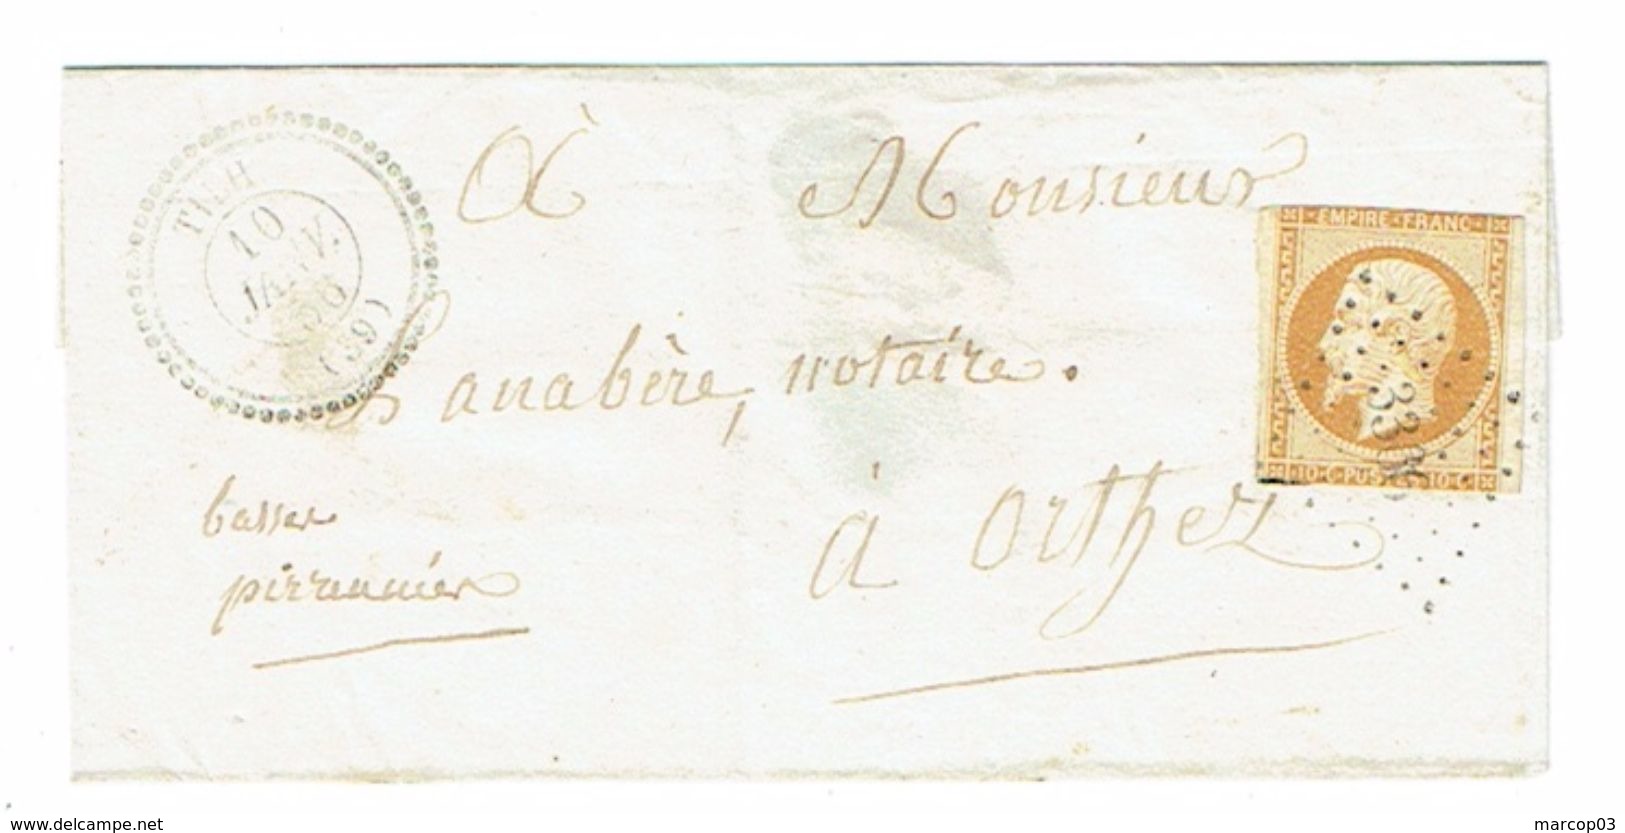 TILH
10
JANV.
56
(39)
À Monsieur
Lanabère, notaire.
à Orthez
basses
pirrennées
EMPIRE FRANC
10 C POSTES 10 C
www.delcampe.net
marcop03